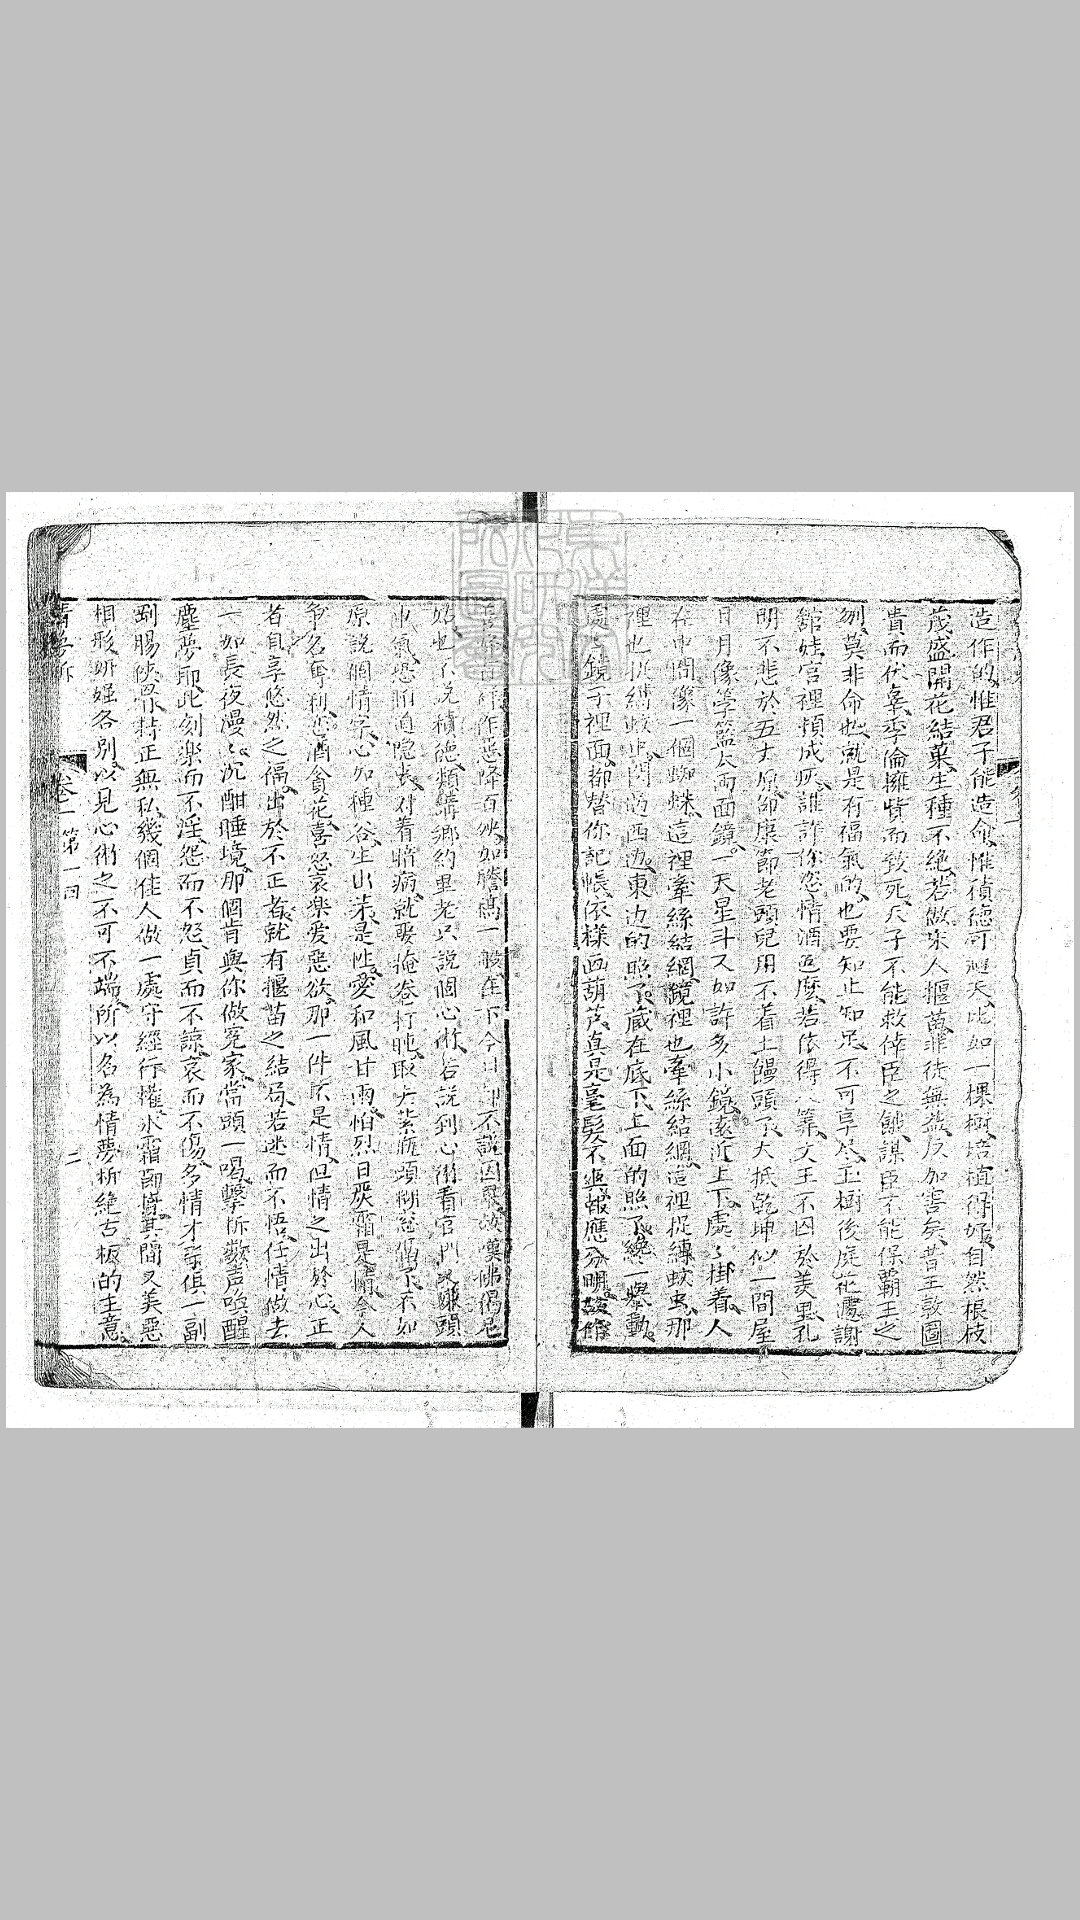 造作的惟君子能造命惟積德可廻天比如一棵樹培植得好自然根枝
茂盛開花結菓生種不絶若做宋人揠苗非徒無益反加害矣昔王敦圖
貴而伏辜季倫擁貲而致死天子不能救倖臣之餓謀臣不能保霸王之
刎莫非命也就是有福氣的也要知止知足不可享尽玉樹後庭花灑謝
舘娃宮裡頓成灰誰許你恣情酒色麽若依得八算文王不囚於羑里孔
明不悲於五丈原邵康節老頭兒用不着土饅頭了大抵乾坤似一間屋
日月像筭籃大両面鏡一天星斗又如許多小鏡遠近上下處〻掛着人
在中間像一個蜘蛛這裡牽絲結網鏡裡也牽絲結網這裡捉縛蚊虫那
裡也捉縛蚊虫閃過西边東边的照了藏在底下上面的照了纔一舉動
處〻鏡子裡面都替你記帳依様画葫芦真是毫髮不爽報應分明
作惡降百殃如 一般在下今日 不說因 佛偈尼
姑也不說積德類講鄉約里老只說個心術若說到心術看官們又嫌頭
巾氣恐怕道隐衷対着暗病就要掩卷打盹取大業瓶頭糊 了不如
原說個情字心如種谷生出 是性愛和風甘雨怕烈日嚴霜是情今人
争名奪利恋酒貪花喜怒哀楽爱惡欲那一件不是情但情之出於心正
者自享悠然之福出於不正者就有揠苗之結局若迷而不悟任情做去
一如長夜漫〻沉酣睡境那個肯與你做寃家當頭一喝擊柝數声喚醒
塵夢耶此刻楽而不淫怨而不怒貞而不諒哀而不傷多情才子俱一副
剛腸俠骨持正無私幾個佳人做一處守經行權氷霜節廪其間又美惡
相形妍媸各别以見心術之不可不端所以名為情夢柝絶古板的主意
情夢柝 卷一 第一回 二